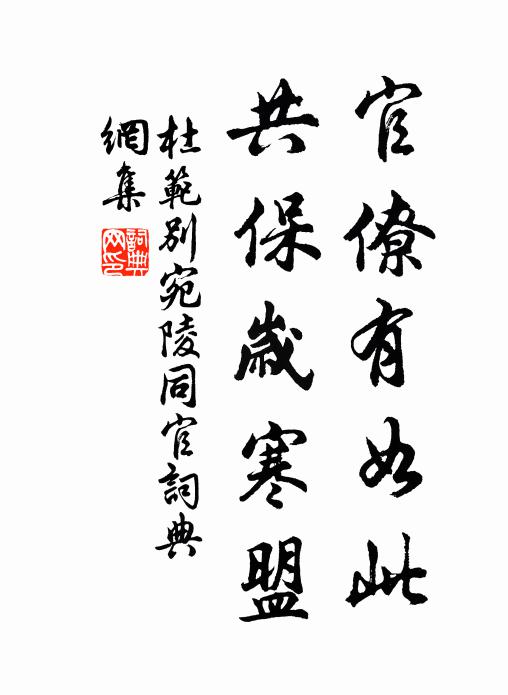 官僚有如此
共保歲寒盟
杜範別宛陵同官詞典
網集
詞典
网印